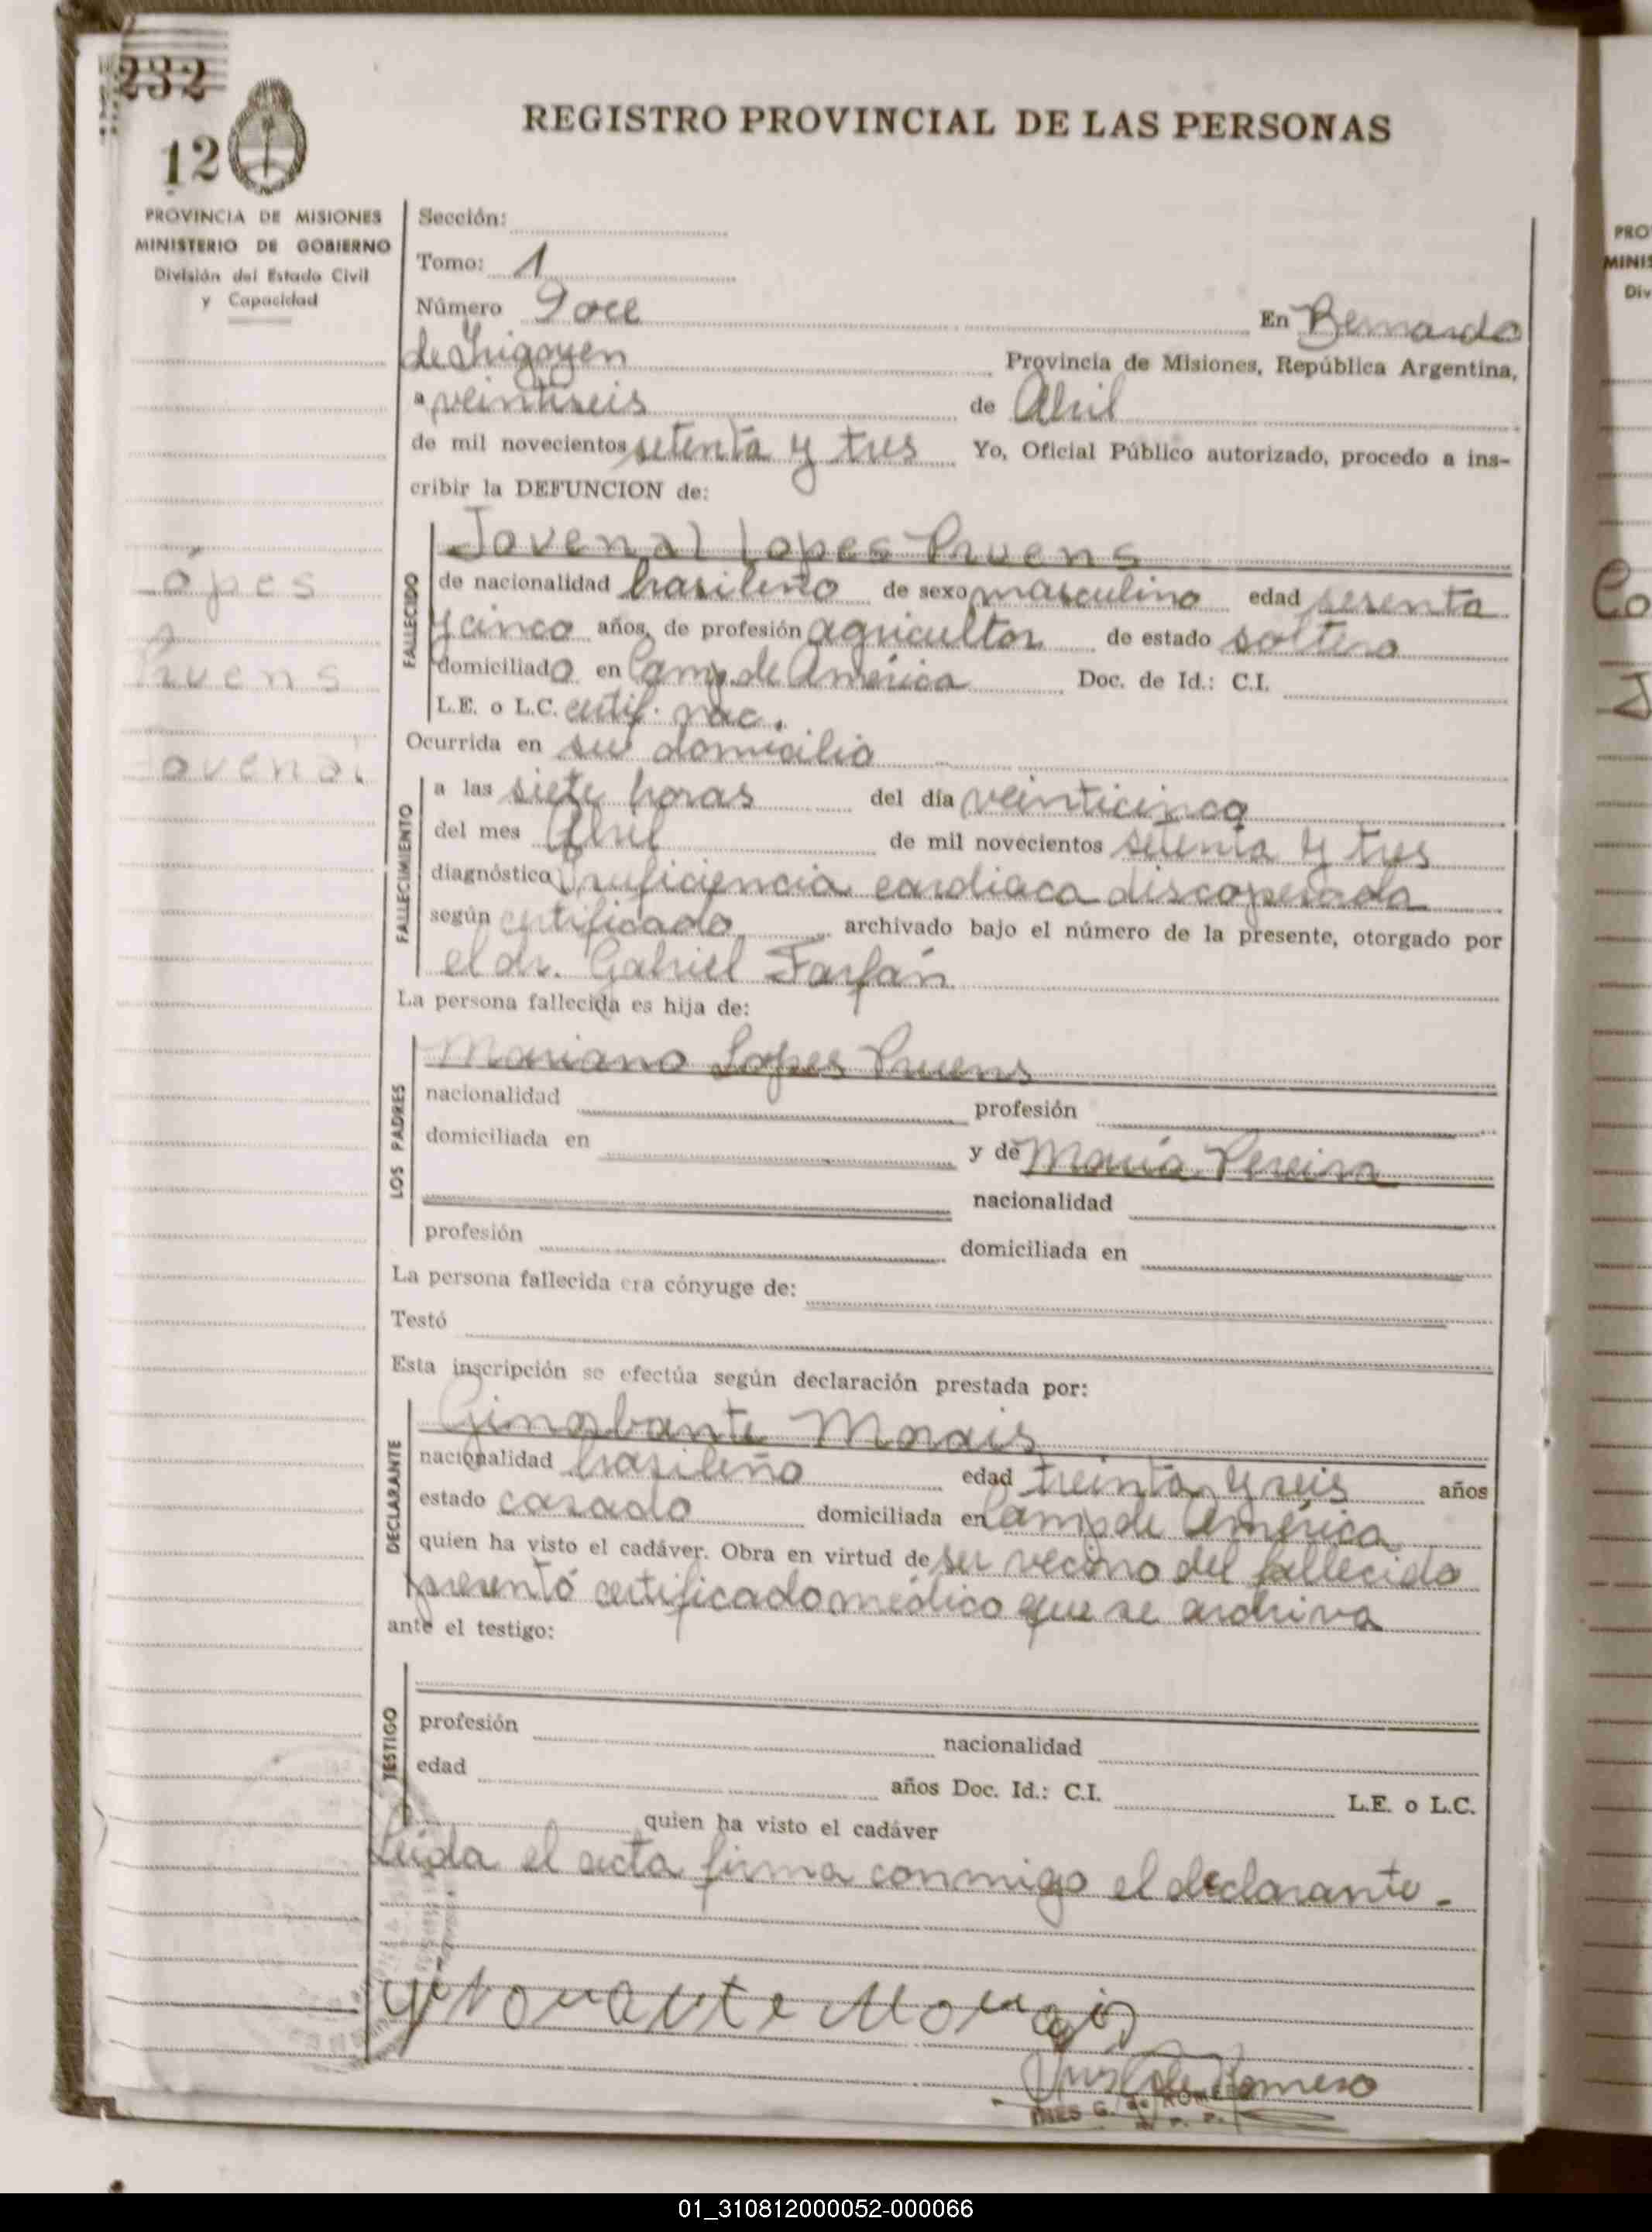 232
12
REGISTRO PROVINCIAL DE LAS PERSONAS
PROVINCIA DE MISIONES
MINISTERIO DE GOBIERNO
División del Estado Civil
y Capacidad
Sección:
Tomo: 1
Número Doce En Bernardo
de Irigoyen Provincia de Misiones, República Argentina,
a veintiseis de Abril
de mil novecientos setenta y tres Yo, Oficial Público autorizado, procedo a ins-
cribir la DEFUNCION de:
Lópes
Pruens
Jovenal
FALLECIDO
Jovenal Lopes Pruens
de nacionalidad brasileño de sexo masculino edad sesenta
y cinco años, de profesión agricultor de estado soltero
domiciliado en Camp. de América Doc. de Id.: C.I.
L.E. o L.C. certif. nac.
Ocurrida en su domicilio
FALLECIMIENTO
a las siete horas del día veinticinco
del mes Abril de mil novecientos setenta y tres
diagnóstico Insuficiencia cardiaca discopesada
según certificado archivado bajo el número de la presente, otorgado por
el dr. Gabriel Farfán
La persona fallecida es hija de:
LOS PADRES
Mariano Lopes Pruens
nacionalidad profesión
domiciliada en y de María Pereira
nacionalidad
profesión domiciliada en
La persona fallecida era cónyuge de:
Testó
Esta inscripción se efectúa según declaración prestada por:
DECLARANTE
Morais
nacionalidad brasileño edad treinta y seis años
estado casado domiciliada en Camp de América
quien ha visto el cadáver. Obra en virtud de ser vecino del fallecido
presentó certificado médico que se archiva
ante el testigo:
TESTIGO
profesión nacionalidad
edad años Doc. Id.: C.I. L.E. o L.C.
quien ha visto el cadáver
Leida el acta firma conmigo el declarante.-
Morais
Romero
INES G. de ROMERO
PRO
MINIS
Div
Co
J
01_310812000052-000066